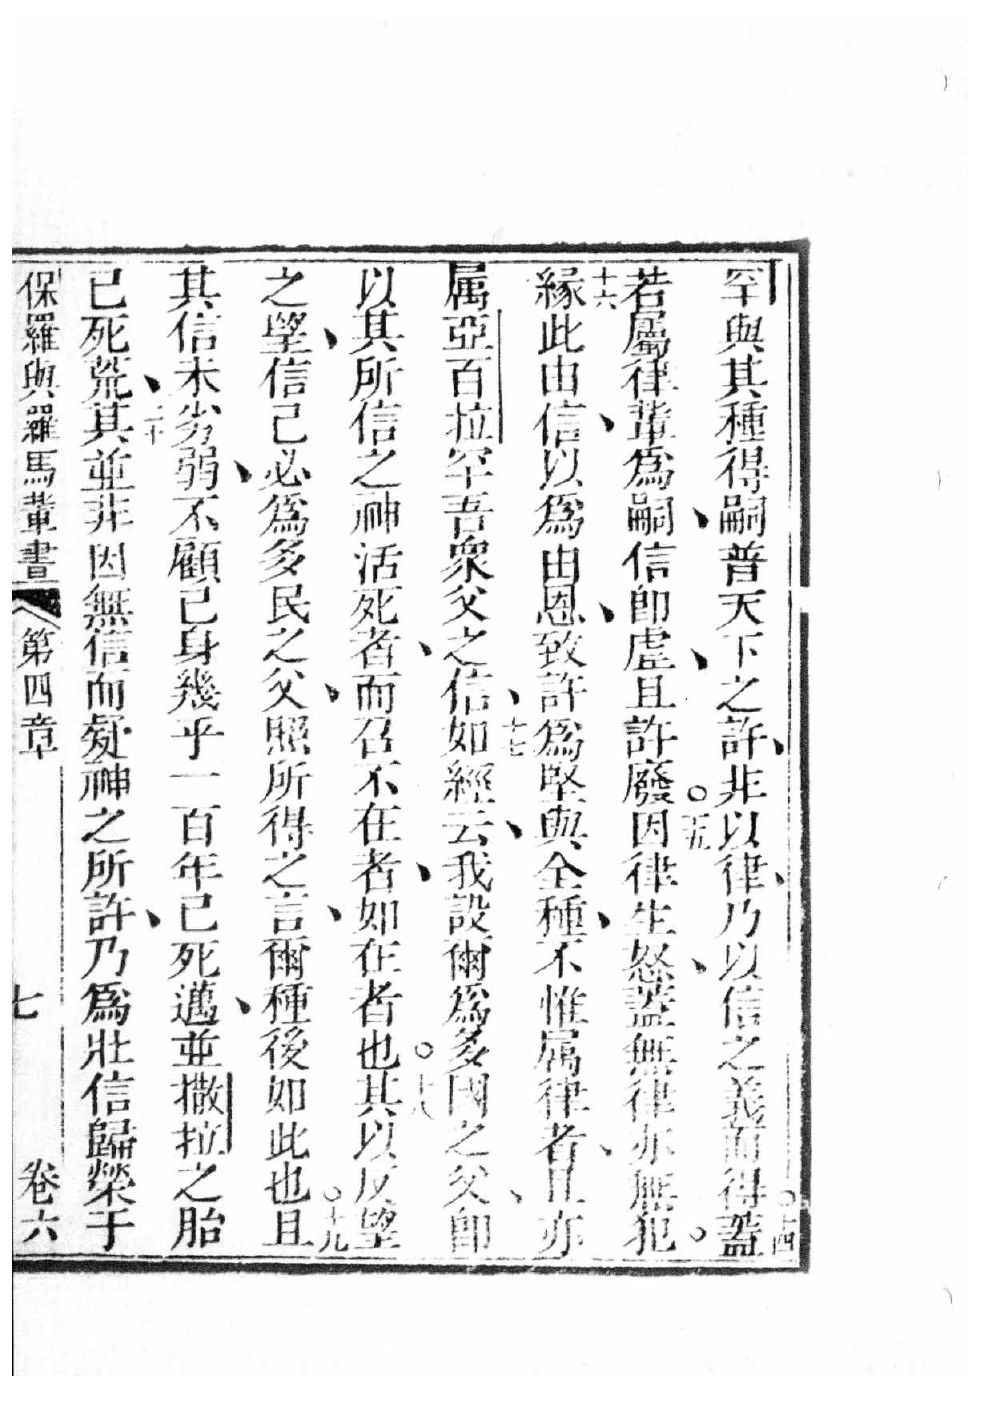 罕與其種得嗣普天下之許、非以律、乃以信之義而得。十四蓋
若屬律輩爲嗣、信卽虛、且許廢。十五因律生怒、蓋無律亦無犯。
十六緣此由信、以爲由恩、致許爲堅與全種、不惟属律者、且亦
属亞百拉罕吾衆父之信、十七如經云、我設爾爲多國之父、卽
以其所信之神活死者、而召不在者、如在者也。十八其以反望
之望、信己必爲多民之父、照所得之言、爾種後如此也。十九且
其信未劣弱、不顧己身幾乎一百年已死邁、並撒拉之胎
已死荒、二十其並非因無信而疑神之所許、乃爲壯信歸榮于
保羅與羅馬輩書 第四章 七 卷六